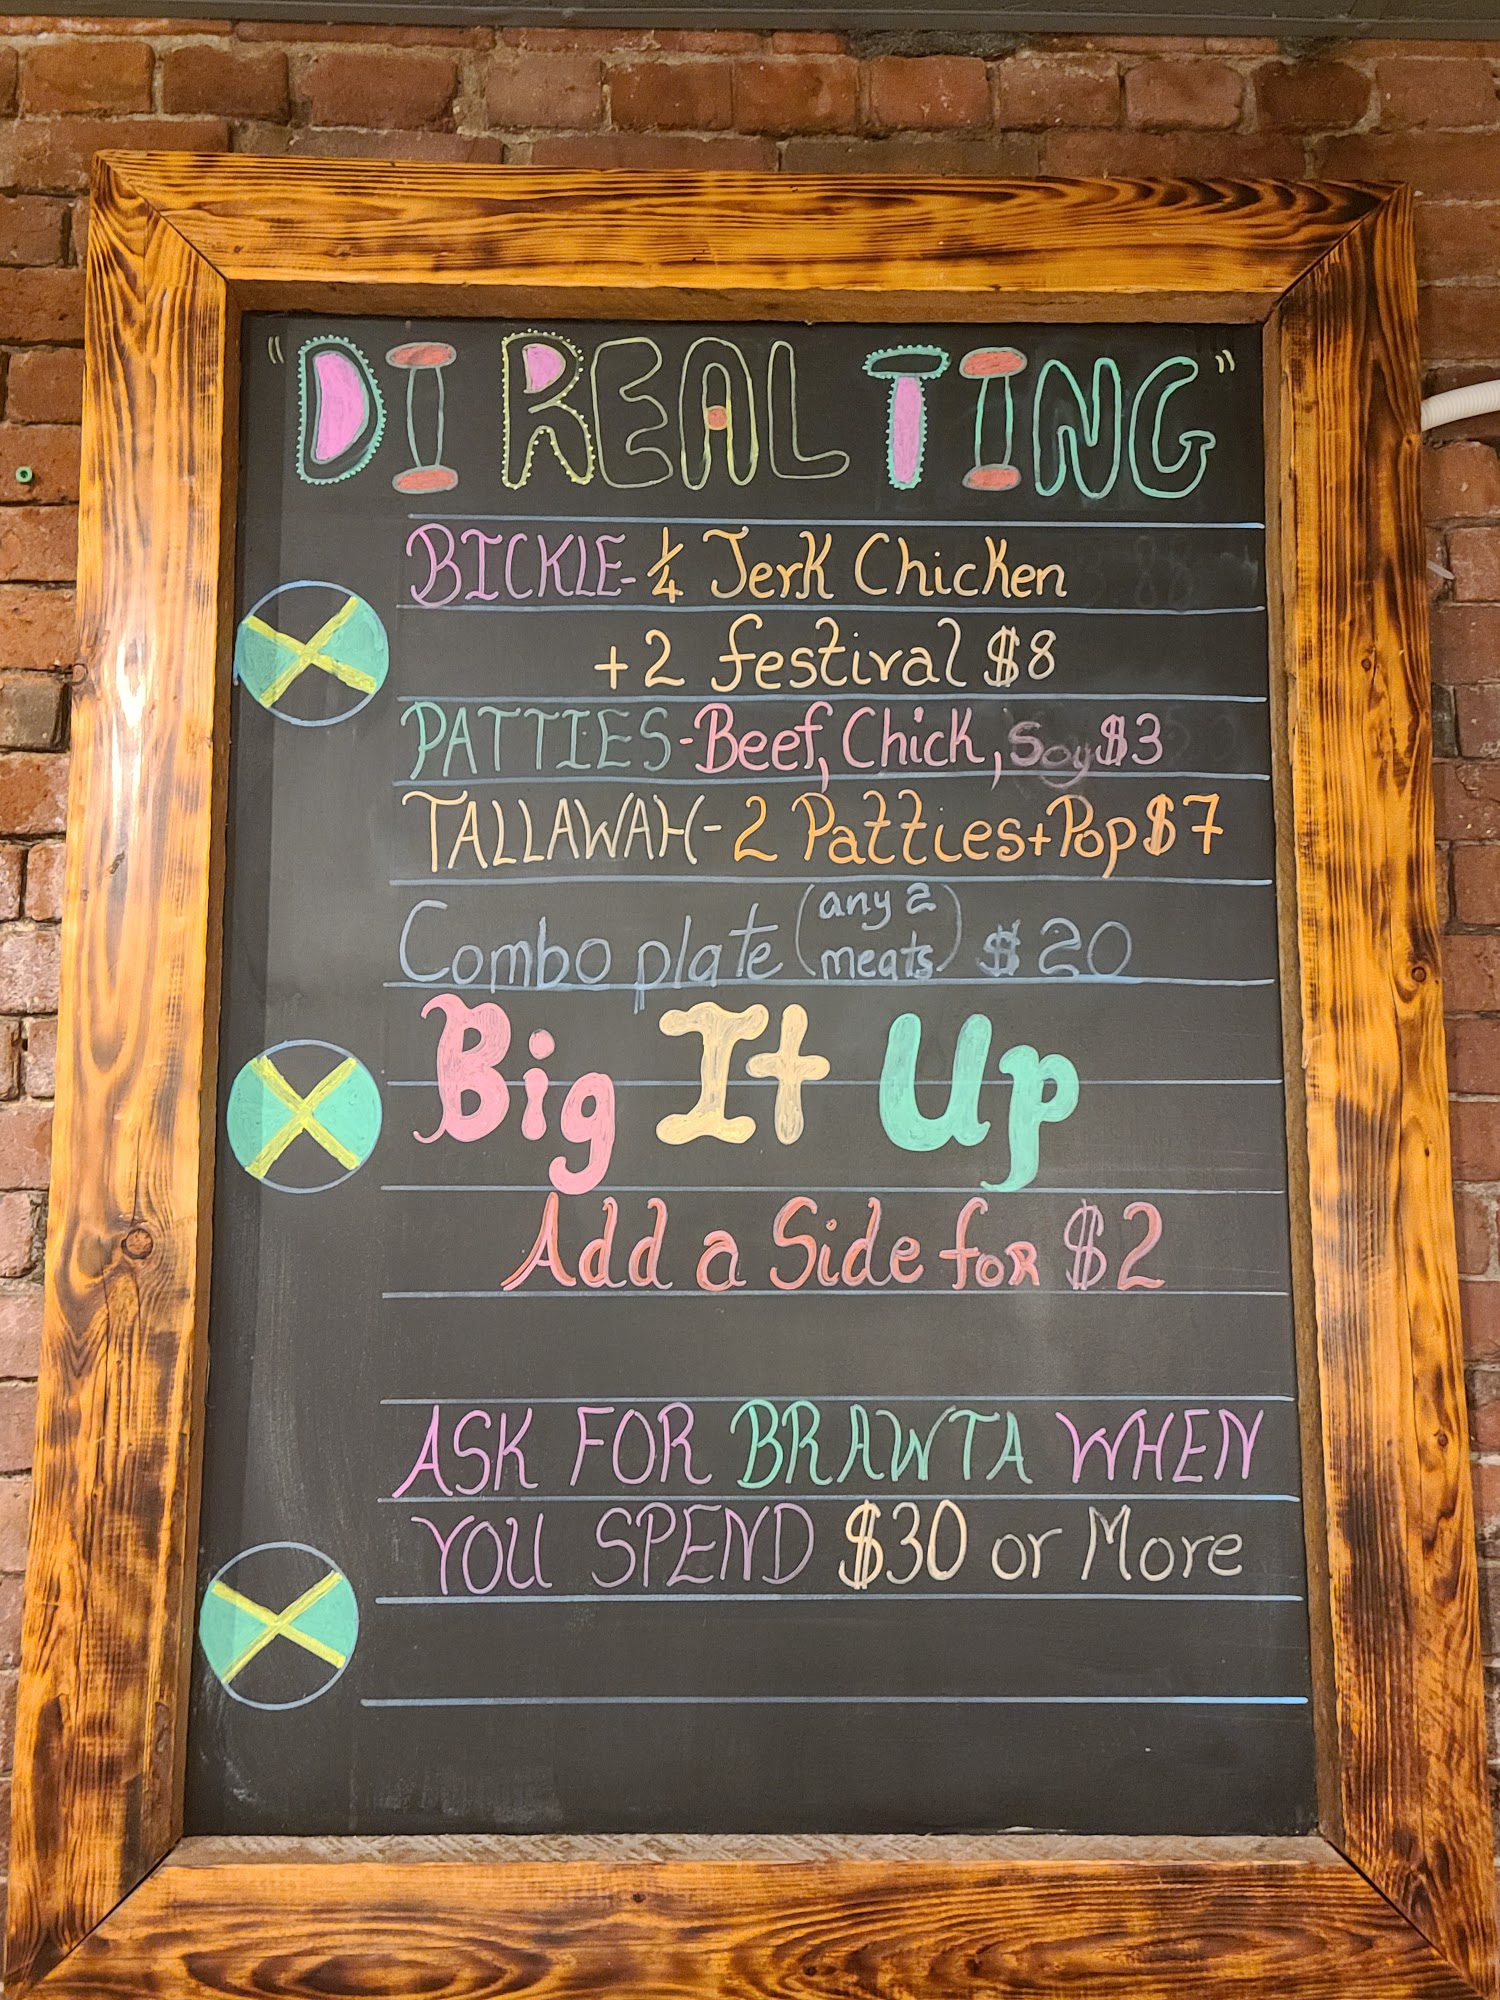 "DI REAL TING"
BICKLE- 1/4 Jerk Chicken
+2 festival $8
PATTIES-Beef, Chick, Soy $3
TALLAWAH- 2 Patties+Pop $7
Combo plate (any 2 meats) $20
Big It Up
Add a Side for $2
ASK FOR BRAWTA WHEN
YOU SPEND $30 or More